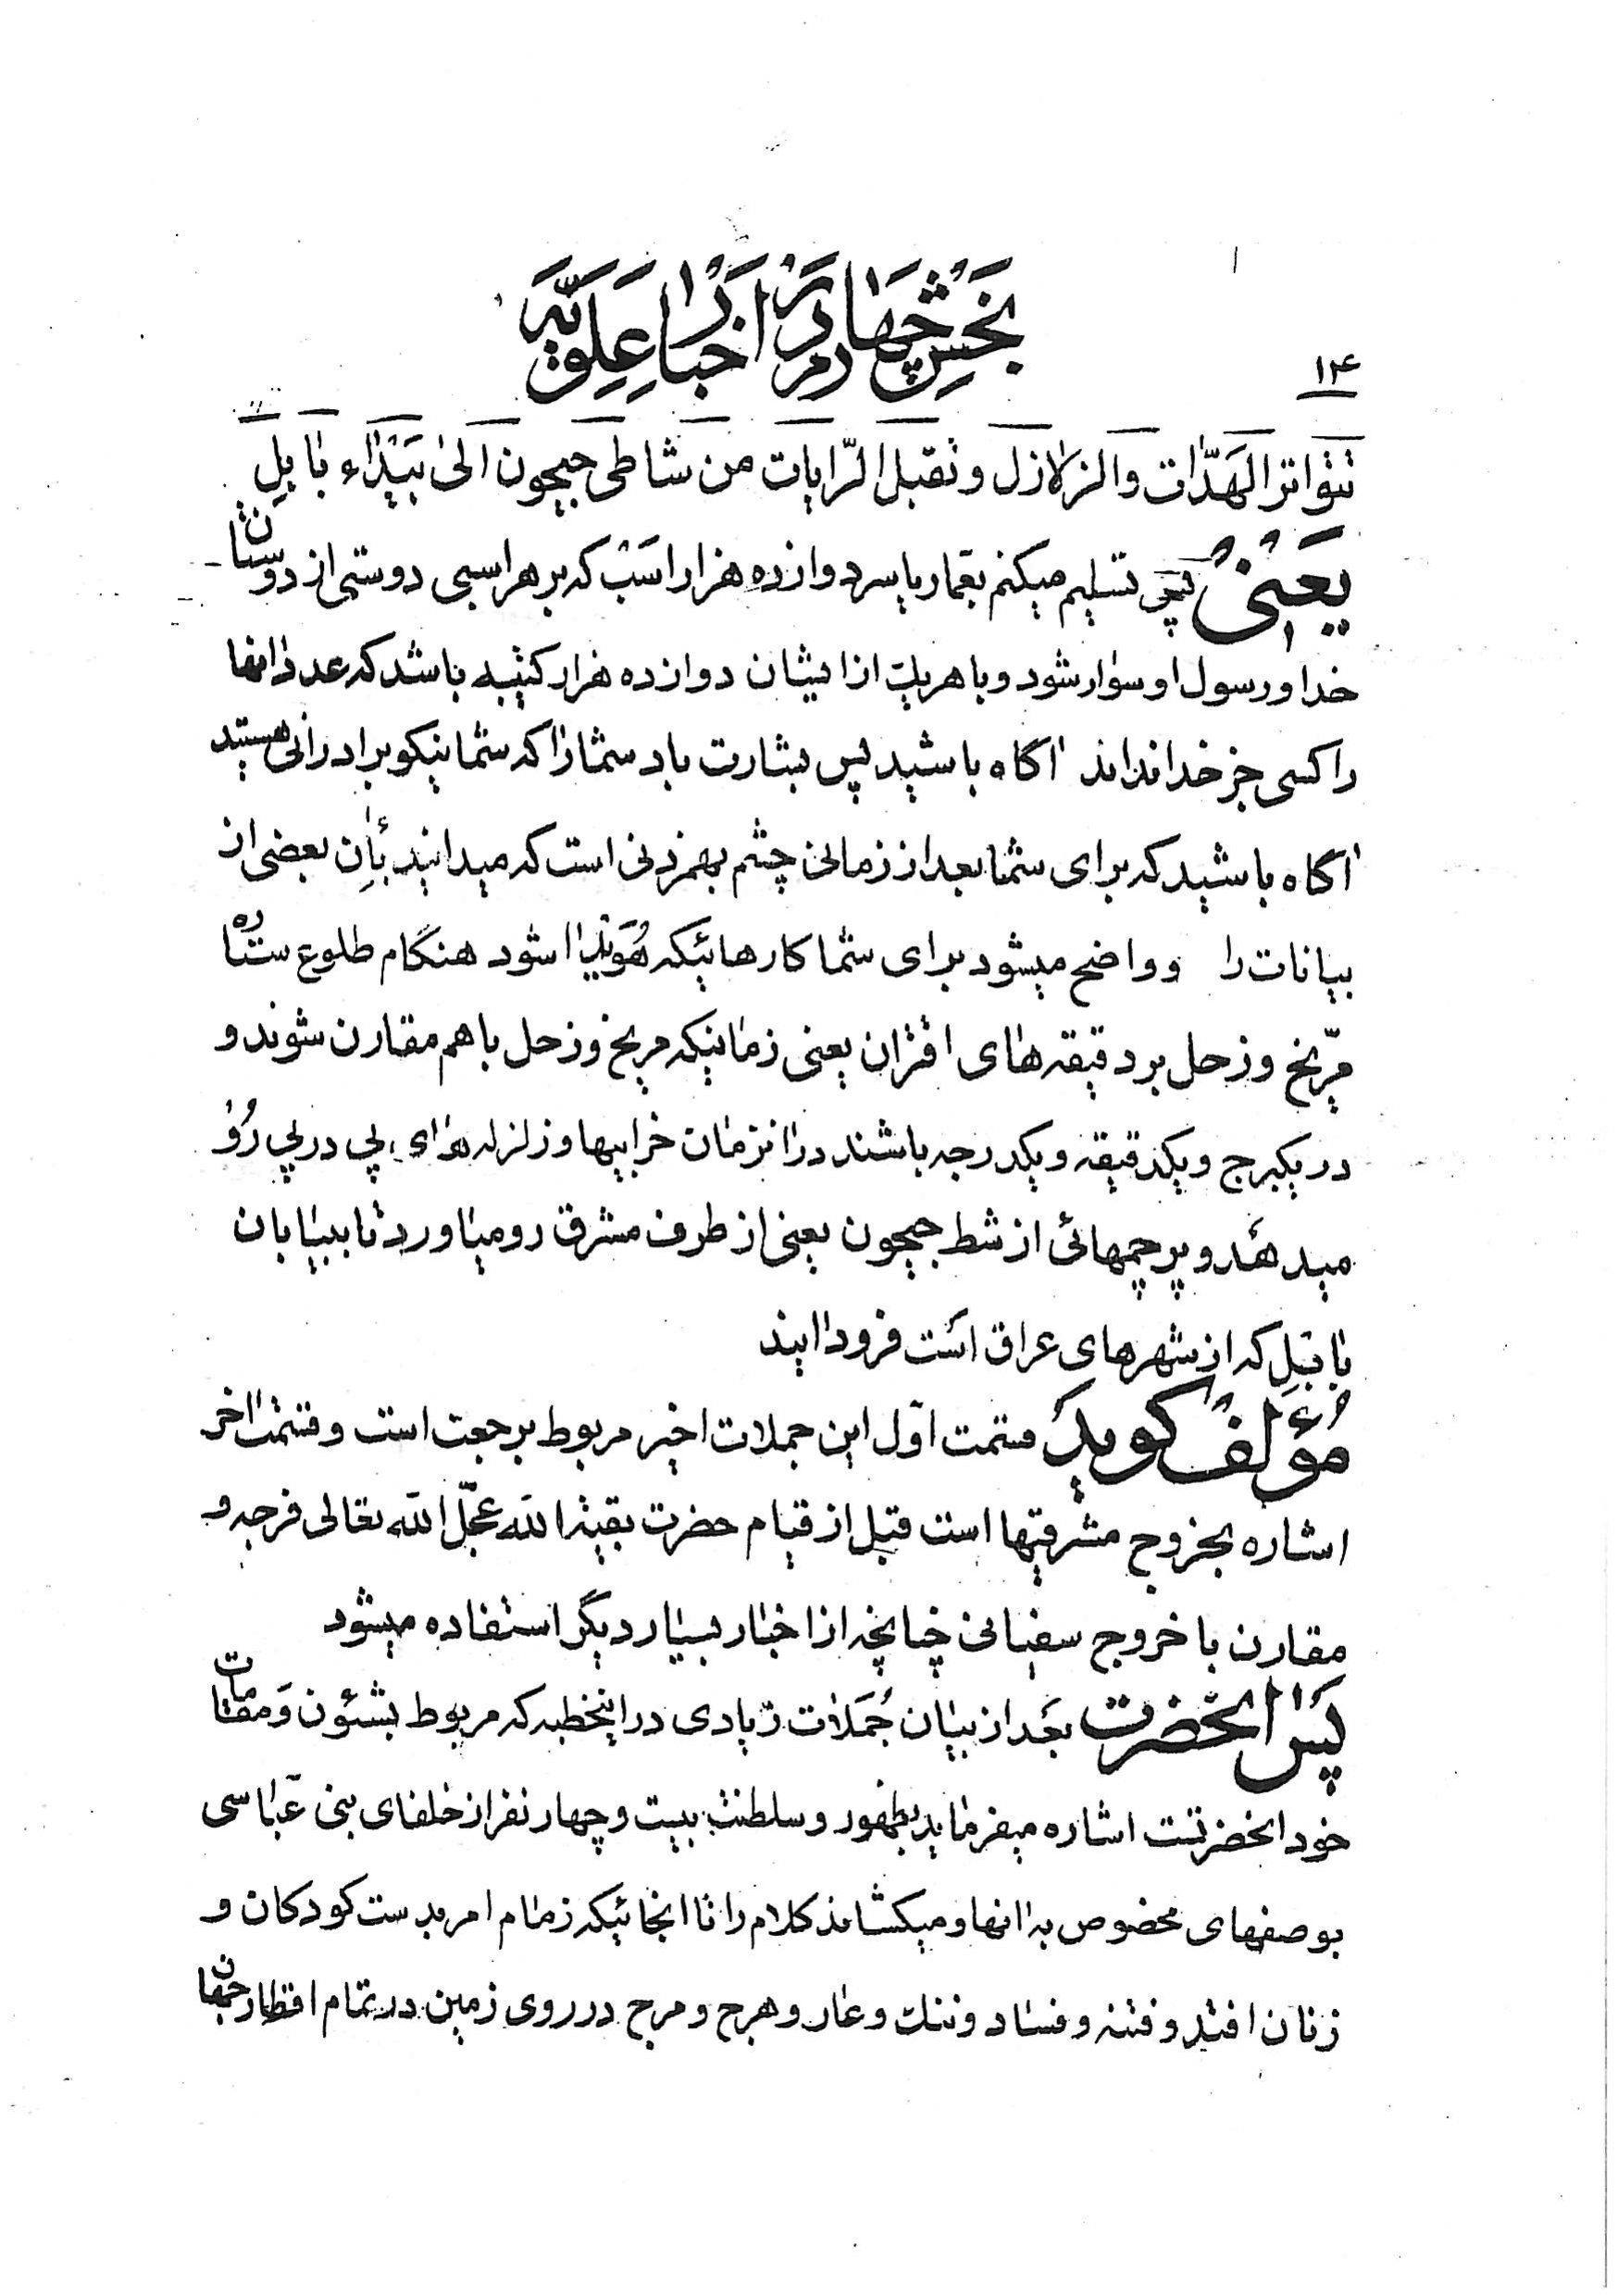 بخش چهارم در اخبار علویه
۱۴
تتواتر الهَدّات والزلازل وتقبل الرّایات من شاطی جیحون الی بَیْدٰاء بابِلِ
یَعنی پس تسلیم میکنم بعمار یاسر دوازده هزار اسب که بر هر اسبی دوستی از دوستان
خدا و رسول او سوار شود و با هر یک از ایشان دوازده هزار کتیبه باشد که عدد آنها
را کسی جز خدا نداند آگاه باشید پس بشارت باد شما را که شما نیکو برادرانی هستید
آگاه باشید که برای شما بعد از زمانی چشم بهمزدنی است که میدانید بآنِ بعضی از
بیانات را و واضح میشود برای شما کارهائیکه هُوَیدا شود هنگام طلوع ستاره
مرّیخ و زحل بر دقیقه‌های اقتران یعنی زمانیکه مریخ و زحل با هم مقارن شوند و
در یکبرج و یکدقیقه و یکدرجه باشند در آنزمان خرابیها و زلزله‌های پی در پی رُوْ
میدهد و پرچمهائی از شط جیحون یعنی از طرف مشرق رو میاورد تا ببیابان
بابِلِ که از شهرهای عراق است فرود آیند
مُؤلف گوید قسمت اوّل این جملات اخیر مربوط برجعت است و قسمت آخر
اشاره بخروج مشرقیها است قبل از قیام حضرت بقیة الله عجّل الله تعالی فرجه و
مقارن با خروج سفیانی چنانچه از اخبار بسیار دیگر استفاده میشود
پَس آنحضرت بعد از بیان جُمَلات زیادی در اینخطبه که مربوط بشئون وَ مقامات
خود آنحضرتست اشاره میفرماید بظهور و سلطنت بیست و چهار نفر از خلفای بنی عبّاسی
بوصفهای مخصوص به آنها و میکشاند کلام را تا آنجائیکه زمام امر بدست کودکان و
زنان افتد و فتنه و فساد و ننک و عار و هرج و مرج در روی زمین در تمام اقطار جهان